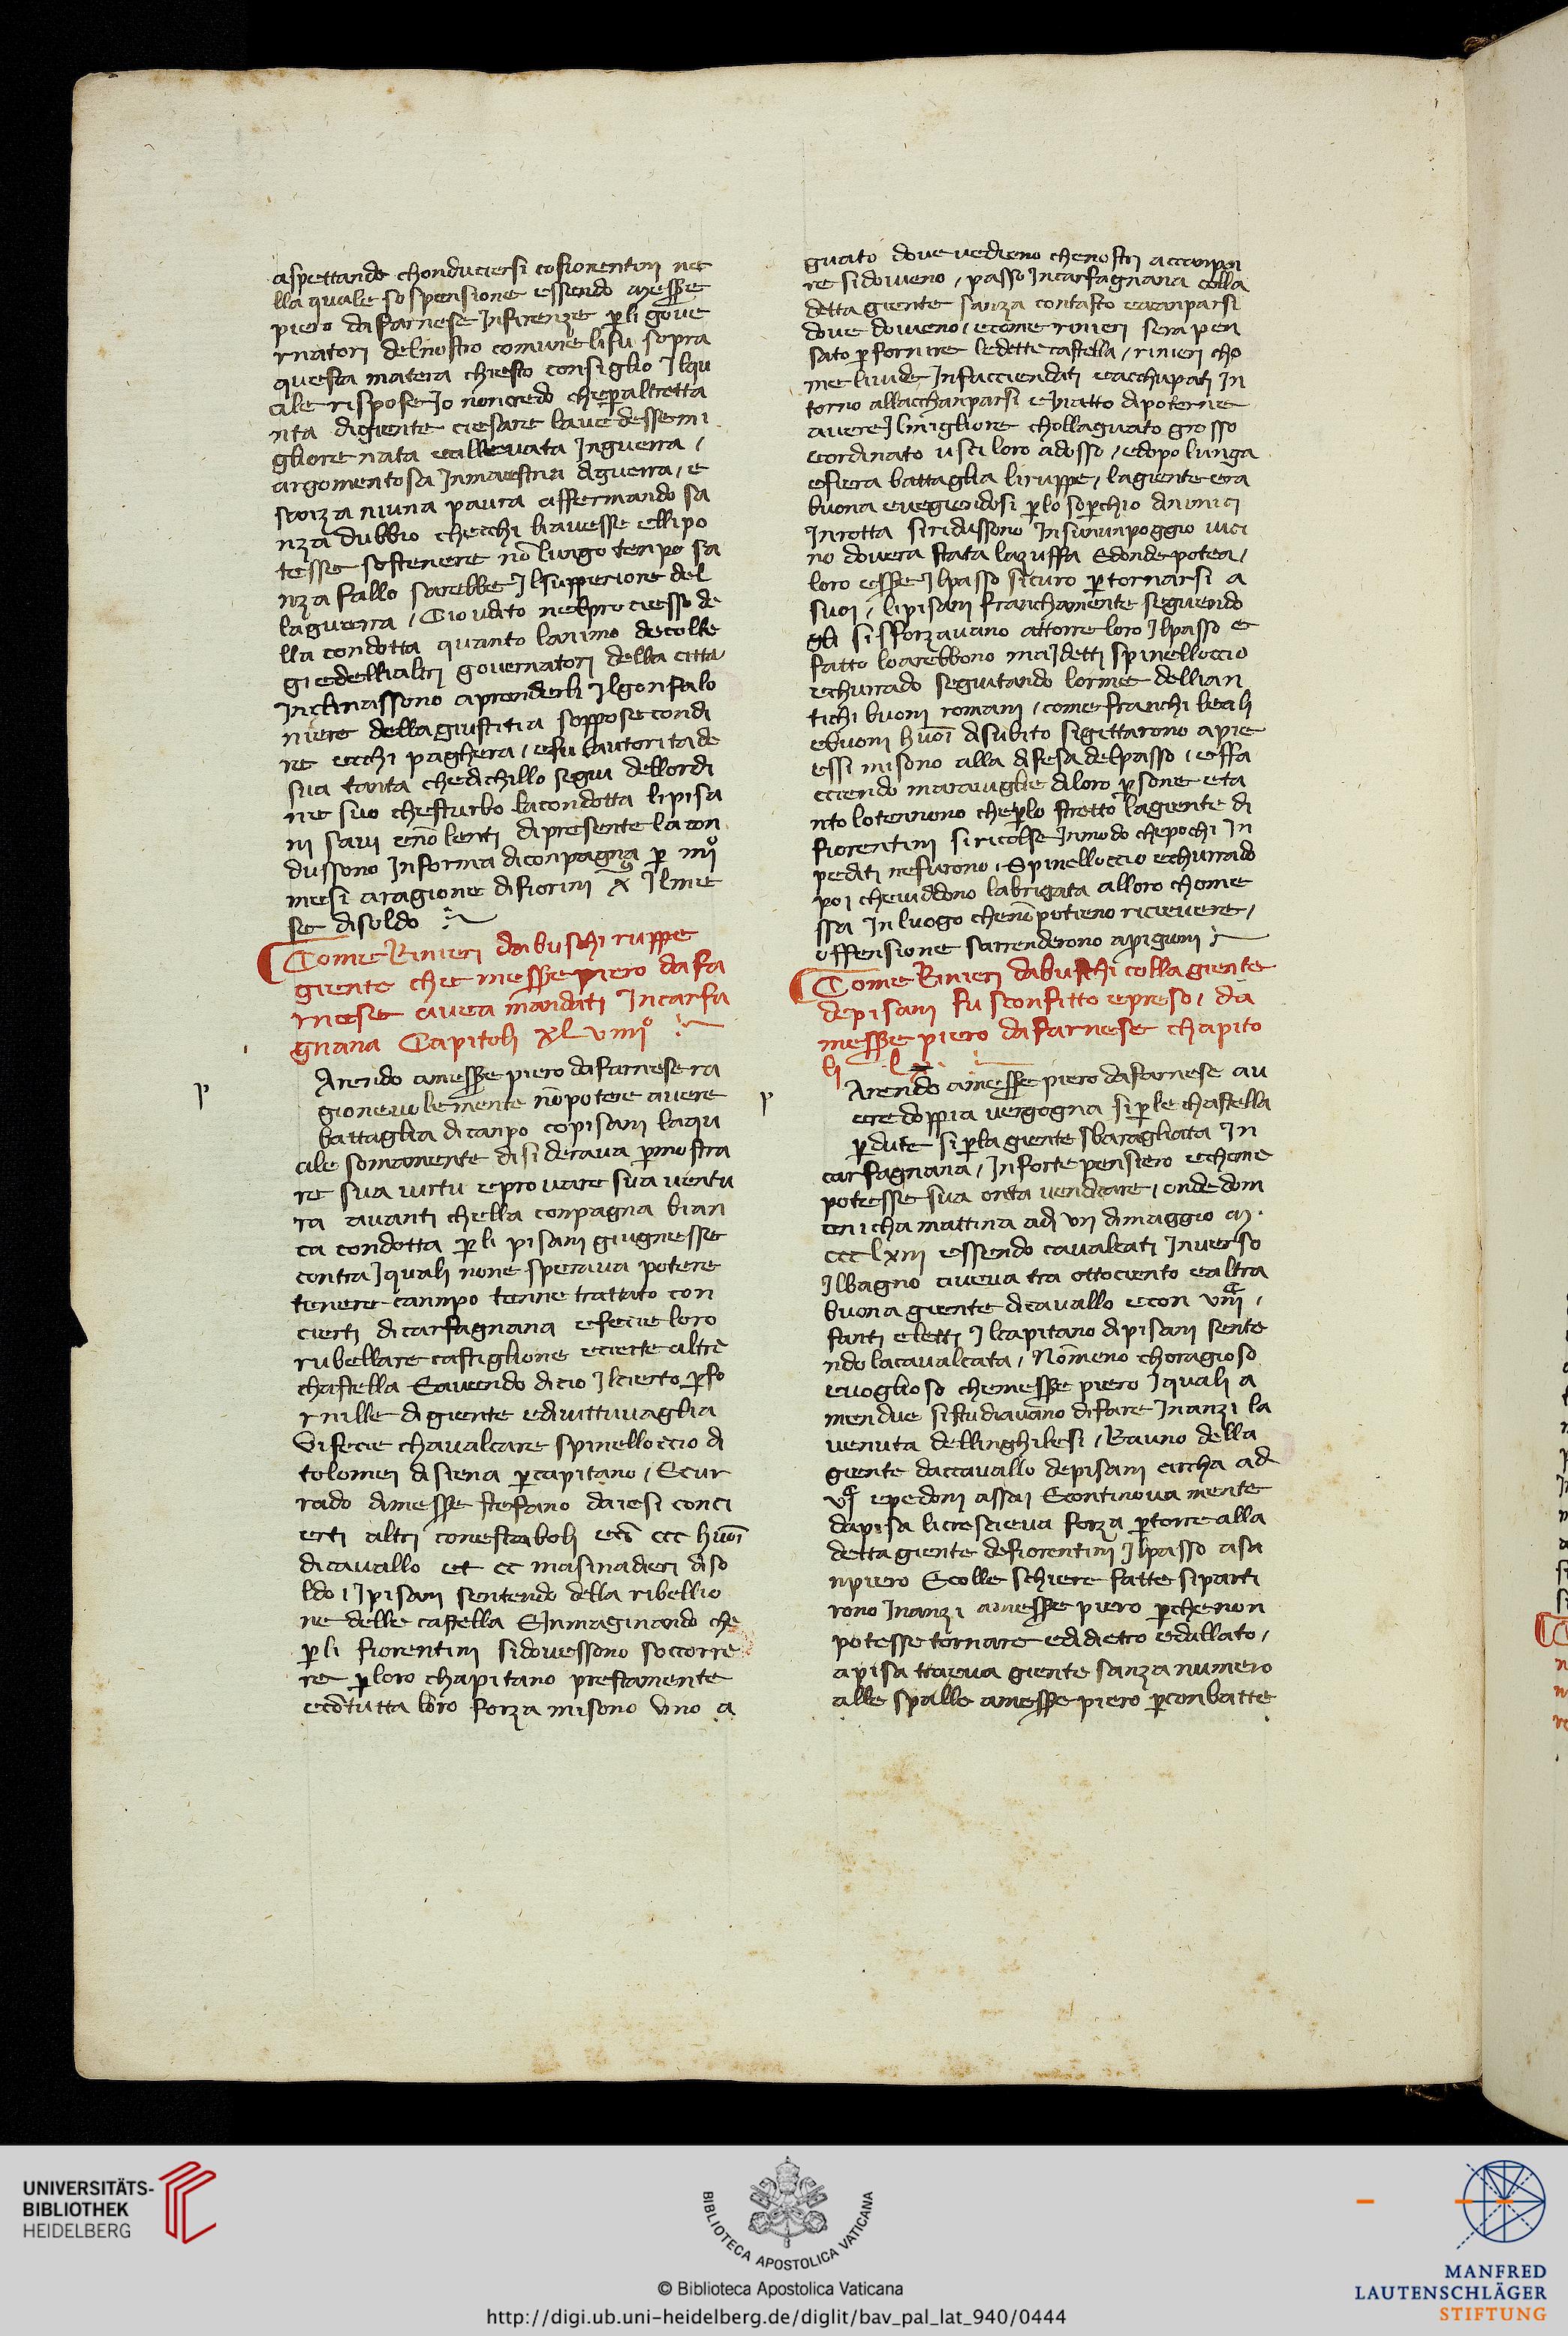 aspettando chonduciersi cofiorentini ne
lla quale sospensione essendo messer
piero dafarnese Infirenze p̲li gove
rnatori delnostro comune lifu sopra
questa matera chiesto consiglio Ilqu
ale rispose Io noncredo chep̲altretta
nta digiente ciesare lavedessemi
gliore nata eallevata Inguerra /
argomentosa Inmaestria diguerra / e
sanza niuna paura affermando sa
nza dubbio checchi lavesse ellipo
tesse sostenere nō lungo tenpo sa
nza fallo sarebbe Ilsupperiore del
laguerra / Cio udito nelprociesso de
lla condotta quanto lanimo decolle
gi edellialtri governatori della citta
Inclinassono aprenderli Ilgonfalo
niere dellagiustitia soppose condi
re ecchi paghera / efu lautoritade
sua tanta chedichillo segui dellordi
ne suo chesturbo lacondotta lipisa
ni savi enō lenti dipresente lacon
dussono Informa diconpagna p̲ iiiiº
mesi aragione difiorini Ilme
se disoldo
Come Rinieri dabuschi ruppe
giente che messer piero dafa
rnese avea mandati Incarfa
gnana Capitoli xlviiiiº
p Arendo amesser piero dafarnese ra
gionevolemente nō potere avere
battaglia dicanpo copisani laqu
ale somamente disiderava p̲mostra
re sua virtu eprovare sua ventu
ra avanti chella conpagna bian
ca condotta p̲li pisani giugnesse
contra Iquali none sperava potere
tenere canmpo tenne trattato con
cierti dicarfagnana efecie loro
rubellare castiglione ecierte altre
chastella Eavendo dicio Ilcierto p̲fo
rnille digiente edivittuvaglia
Vifecie chavalcare spinelloccio di
tolomei disiena p̲capitano / Ecur
rado dimesser stefano daiesi conci
erti altri conestaboli ecō ccc huoī
dicavallo et cc masinadieri diso
ldo / Ipisani sentendo della ribellio
ne delle castella EInmaginando che
p̲li fiorentini sidovessono soccorre
re p̲loro chapitano prestamente
ecōtutta loro forza misono uno a
guato dove vedieno chenostri accanpa
re sidovieno / passo Incarfagnana colla
detta giente sanza contasto eacanparsi
dove dovieno / ecome rinieri sera pen
sato p̲fornire ledette castella / rinieri cho
me livide Infacciendati eacchupati In
torno allacchanparsi eInatto dipoterne
avere Ilmigliore chollaguato grosso
eordinato usci loro adosso / edopo lunga
efiera battaglia liruppe / lagiente era
buona evegiendosi p̲lo sop̲chio dinimici
Inrotta siridussono Insununpoggio vici
no dovera stata lazuffa Edonde potea /
loro essere Ilpasso sicuro p̲tornarsi a
suoi / lipisani franchamente seguendo
gli sisforzavano attorre loro Ilpasso e
fatto loarebbono maIdetti spinelloccio
echurrado seguitando lorme dellian
tichi buoni romani / come franchi leali
ebuoni huoī disubito sigittarono apie
essi misono alla difesa delpasso / effa
cciendo maraviglie diloro p̲sone eta
nto lotennono chep̲lo stretto lagiente di
fiorentini siricolse Inmodo chepochi In
pediti nefurono / Spinelloccio echurrado
poi cheviddono labrigata alloro chome
ssa In luogo chenō potieno ricievere /
offensione sarrenderono aprigioni
Come Rinieri dabuschi colla giente
depisani fu sconfitto epreso / da
messer piero dafarnese chapito
li l
p Arendo amesser piero dafarnese av
ere doppia vergogna sip̲le chastella
p̲dute sip̲la giente sbaragliata In
carfagnana / Inforte pensiero echome
potesse sua onta vendicare / onde dom
enicha mattina adi vii dimaggio m.
ccclxiii essendo cavalcati Inverso
Ilbagno aveva tra ottociento ealtra
buona giente dicavallo econ
fanti eletti Ilcapitano dipisani sente
ndo lacavalcata / Nōmeno choragioso
evoglioso chemesser piero Iquali a
mendue sistudiavano difare Inanzi la
venuta dellinghilesi / Eavuno della
giente daccavallo depisani circha adi
epedoni assai Econtinovamente
dapisa licrescieva forza p̲torre alla
detta giente defiorentini Ilpasso asa
npiero Ecolle schiere fatte siparti
rono Inanzi amesser piero p̲che non
potesse tornare edidietro edallato /
apisa traeva giente sanza numero
alle spalle amesser piero p̲conbatte
UNIVERSITÄTS-
BIBLIOTHEK
HEIDELBERG
BIBLIOTECA APOSTOLICA VATICANA
© Biblioteca Apostolica Vaticana
http://digi.ub.uni-heidelberg.de/diglit/bav_pal_lat_940/0444
MANFRED
LAUTENSCHLÄGER
STIFTUNG